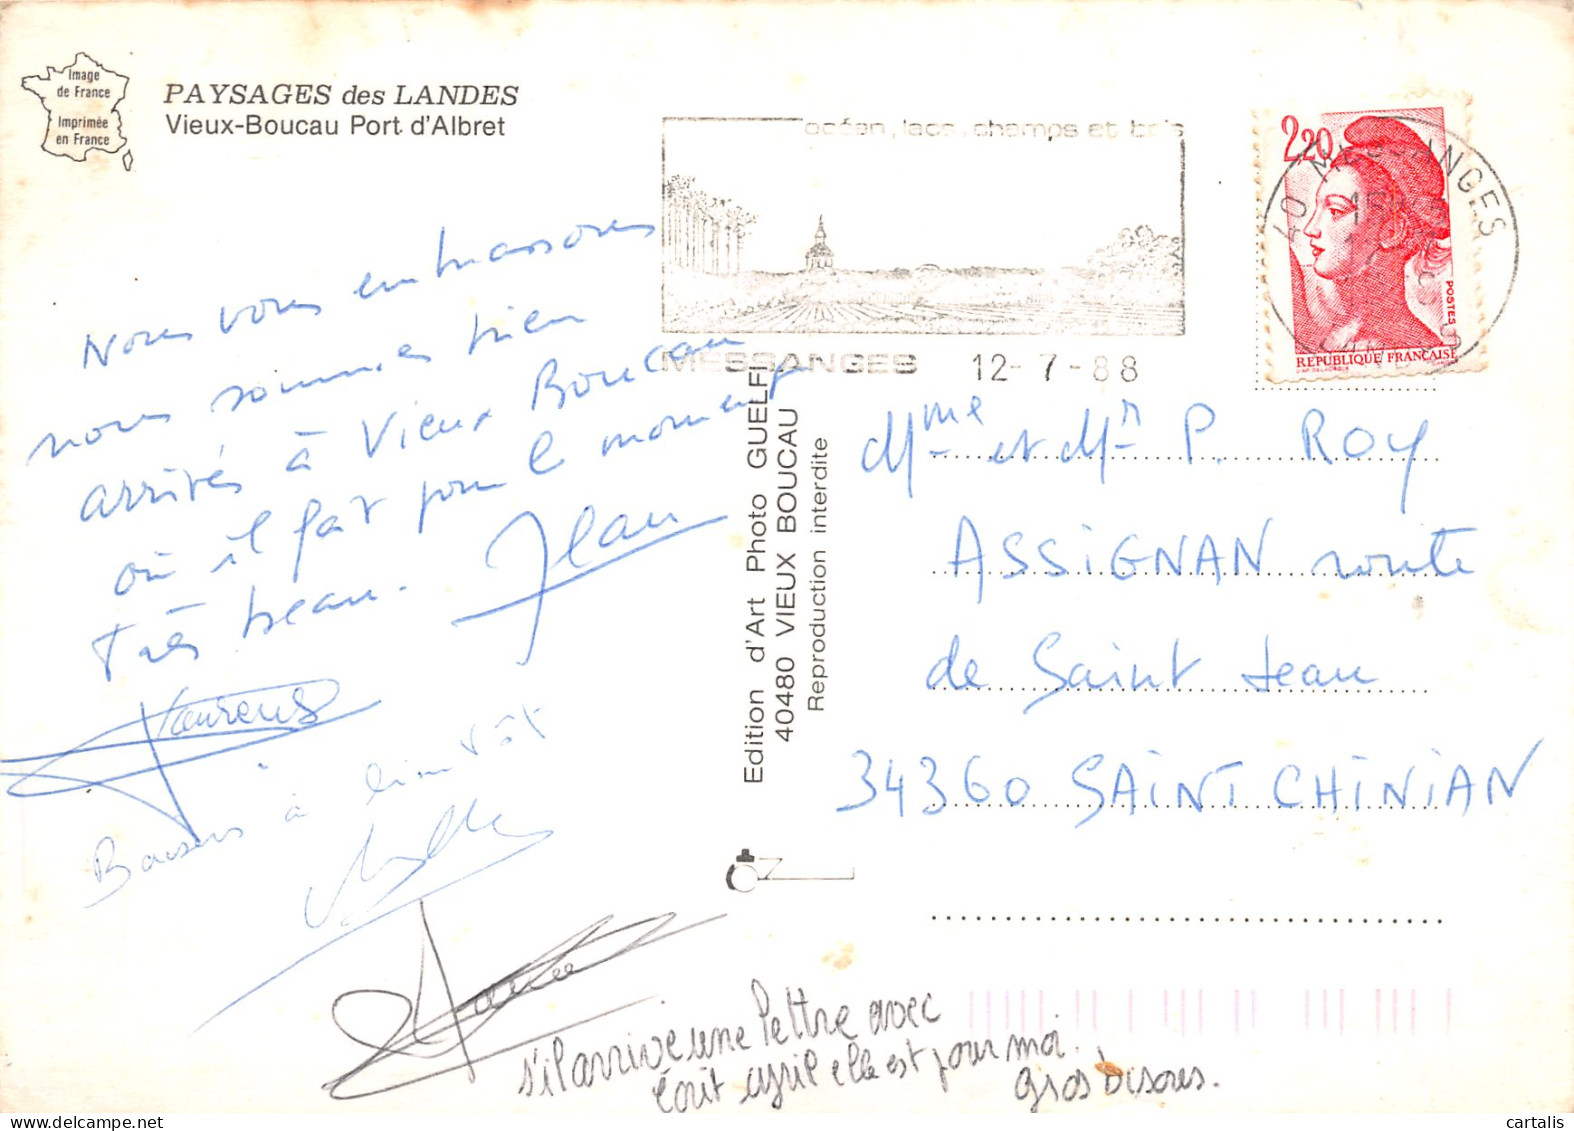 Image
de France
Imprimée
en France
PAYSAGES des LANDES
Vieux-Boucau Port d'Albret
océan, lacs, champs et bois
MESSANGES 12-7-88
40 MESSANGES
2,20
POSTES
REPUBLIQUE FRANÇAISE
Nous vous embrassons
nous sommes bien
arrivés à Vieux Boucau
où il fait pour le moment
très beau. Jean
Laurens
Baisers à bientôt
s'il arrive une lettre avec
écrit cyril elle est pour moi.
gros bisous.
Edition d'Art Photo GUELFI
40480 VIEUX BOUCAU
Reproduction interdite
Mme et Mr P. ROY
ASSIGNAN route
de Saint Jean
34360 SAINT CHINIAN
cartalis